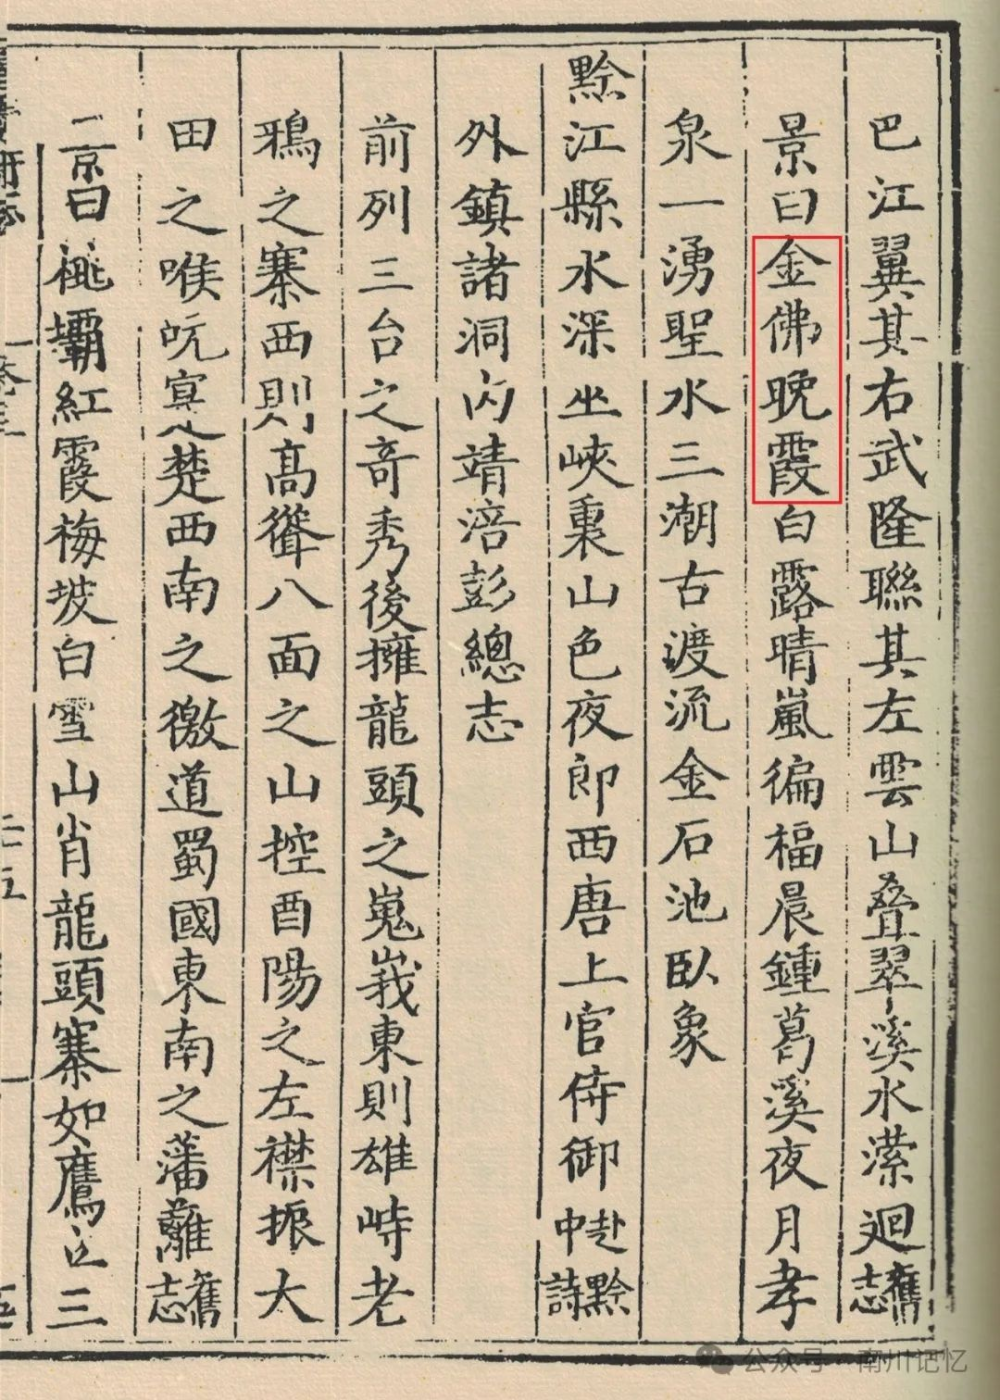 巴江翼其右武隆聯其左雲山叠翠溪水瀠迴舊志
景曰金佛晚霞白露晴嵐徧福晨鍾葛溪夜月孝
泉一湧聖水三潮古渡流金石池臥象
黔江縣水深坐峽裏山色夜郎西唐上官侍御赴黔中詩
外鎮諸洞內靖涪彭總志
前列三台之奇秀後擁龍頭之嵬峩東則雄峙老
鴉之寨西則高聳八面之山控酉陽之左襟振大
田之喉吭寔楚西南之徼道蜀國東南之藩離舊志
二京曰桃壩紅霞梅坡白雪山肖龍頭寨如鷹三
公众号 南川记忆